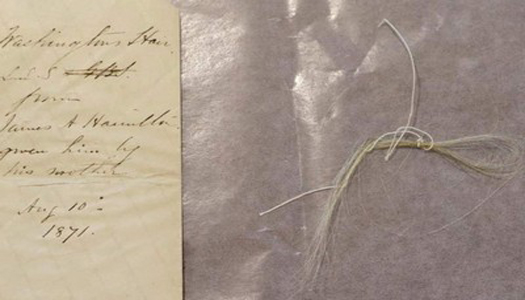 Washington's Hair,
from
James A Hamilton
given him by
his mother
Aug 10
1871.